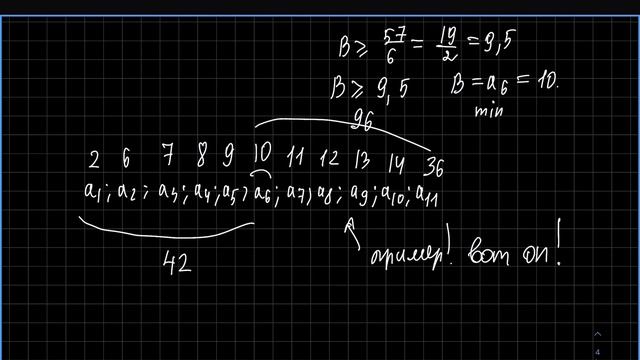 B ≥ 57/6 = 19/2 = 9,5
B ≥ 9,5 B = a₆ = 10.
min
96
2 6 7 8 9 10 11 12 13 14 36
a₁; a₂; a₃; a₄; a₅; a₆; a₇; a₈; a₉; a₁₀; a₁₁
42
пример! вот он!
4